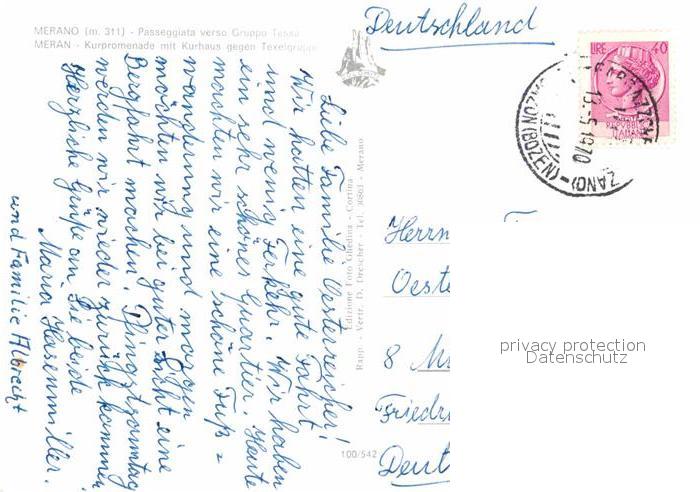 MERANO (m. 311) - Passeggiata verso Gruppo Tessa
MERAN - Kurpromenade mit Kurhaus gegen Texelgruppe
Deutschland
LIRE 40
13.5.1970
(BOZEN)
Liebe Familie Oesterreicher!
Wir hatten eine gute Fahrt
und wenig Verkehr. Wir haben
ein sehr schönes Quartier. Heute
machten wir eine schöne Fuß=
wanderung und morgen
möchten wir bei guter Sicht eine
Bergfahrt machen. Pfingstsonntag
werden wir wieder zurück kommen
Herzliche Grüße an Sie beide
Maria Hasenmiller.
und Familie Albrecht
Rapp. - Vertr. D. Drescher - Tel. 30803 - Merano
Edizione Foto Ghedina - Cortina
100/542
Herrn
Oeste
8 M
Friedr
Deut
privacy protection
Datenschutz